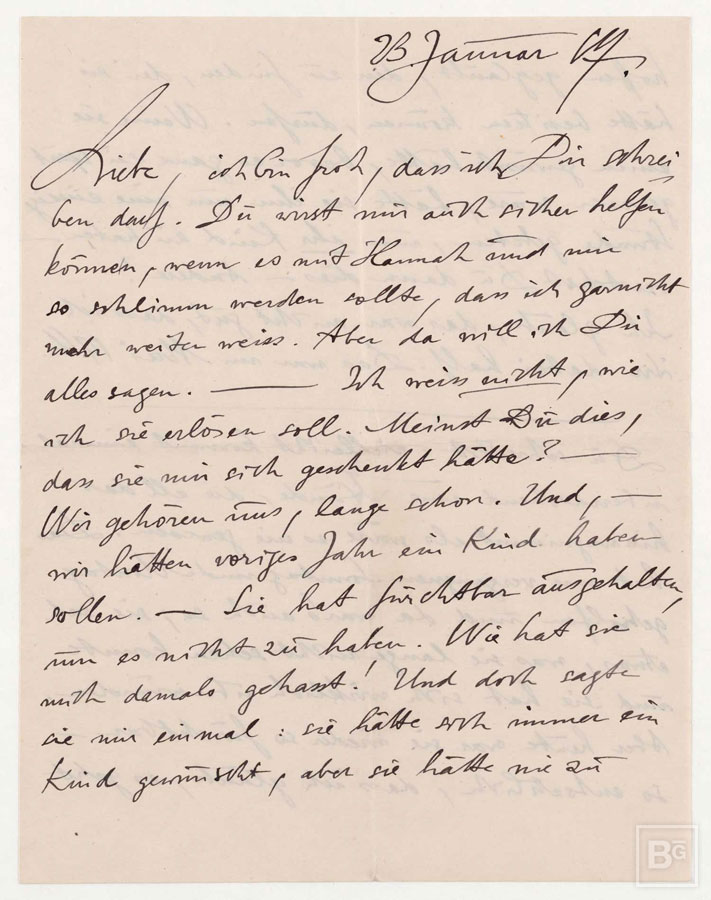 23. Januar 17.
Liebe, ich bin froh, dass ich Dir schrei
ben darf. Du wirst mir auch sicher helfen
können, wenn es mit Hannah und mir
so schlimm werden sollte, dass ich garnicht
mehr weiter weiss. Aber da will ich Dir
alles sagen. — Ich weiss nicht, wie
ich sie erlösen soll. Meinst Du dies,
dass sie mir sich geschenkt hätte? —
Wir gehören uns, lange schon. Und, —
wir hätten voriges Jahr ein Kind haben
sollen. — Sie hat furchtbar ausgehalten,
um es nicht zu haben. Wie hat sie
mich damals gehasst! Und doch sagte
sie mir einmal: sie hätte sich immer ein
Kind gewünscht, aber sie hätte nie zu
BG